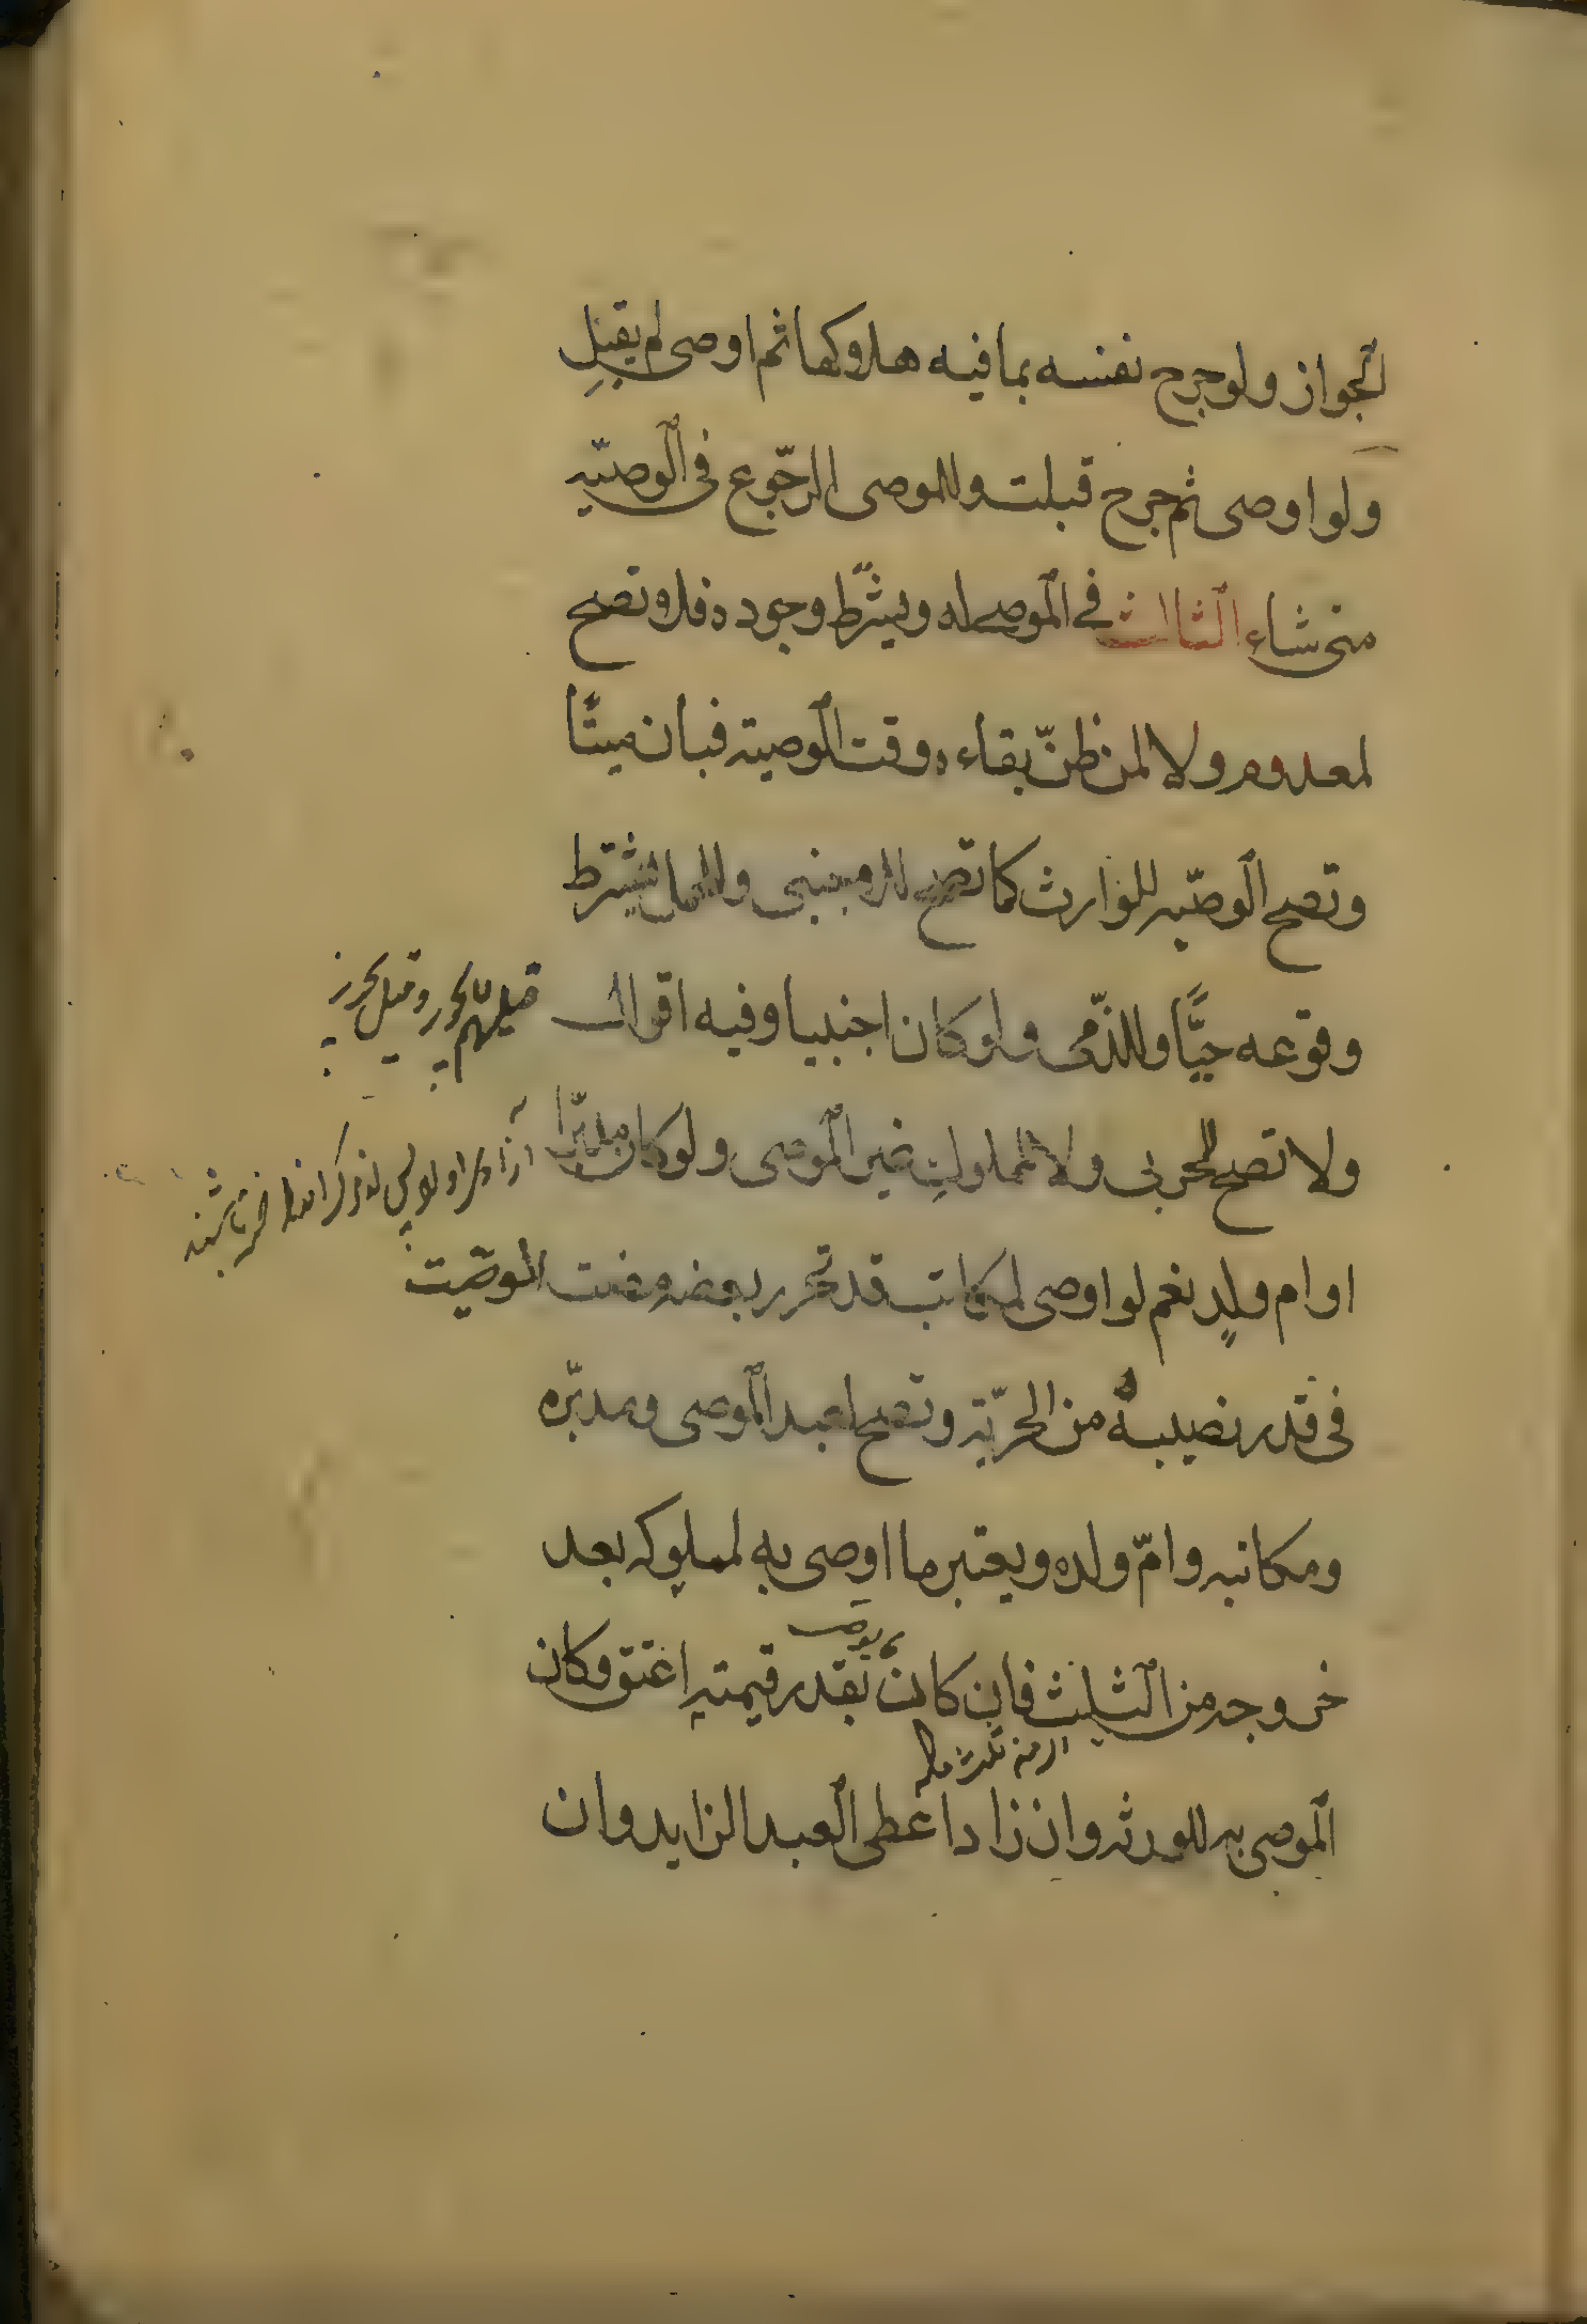 الجواز ولو جرح نفسه بما فيه هلاوكها ثم اوصى لم يقبل
ولو اوصى ثم جرح قبلت وللموصى الرجوع فى الوصيّه
متى شاء الثالث فى الموصى له ويشترط وجوده فلا وتصح
لمعدوم ولا لمن ظنّ بقاءه وقت الوصية فبان ميتًا
وتصح الوصيّه للوارث كما تصح للاجنبى وللحمل بشرط
وقوعه حيًّا وللذّمى ولو كان اجنبيا وفيه اقوال
وقيل يجوز
ولا تصح للحربى ولا لمملوك غير الموصى ولو كان مدبّرا
او ام ولدٍ نعم لو اوصى لمكاتب قد تحرر بعضه مضت الوصيت
فى قدر نصيبه من الحريّة وتصح لعبد الموصى ومدبّره
ومكاتبه وامّ ولده ويعتبر ما اوصى به لمملوكه بعد
خروجه من الثلث فان كان بقدر قيمته اعتق وكان
الموصى به للورثه وان زاد اعطى العبد الزايد وان